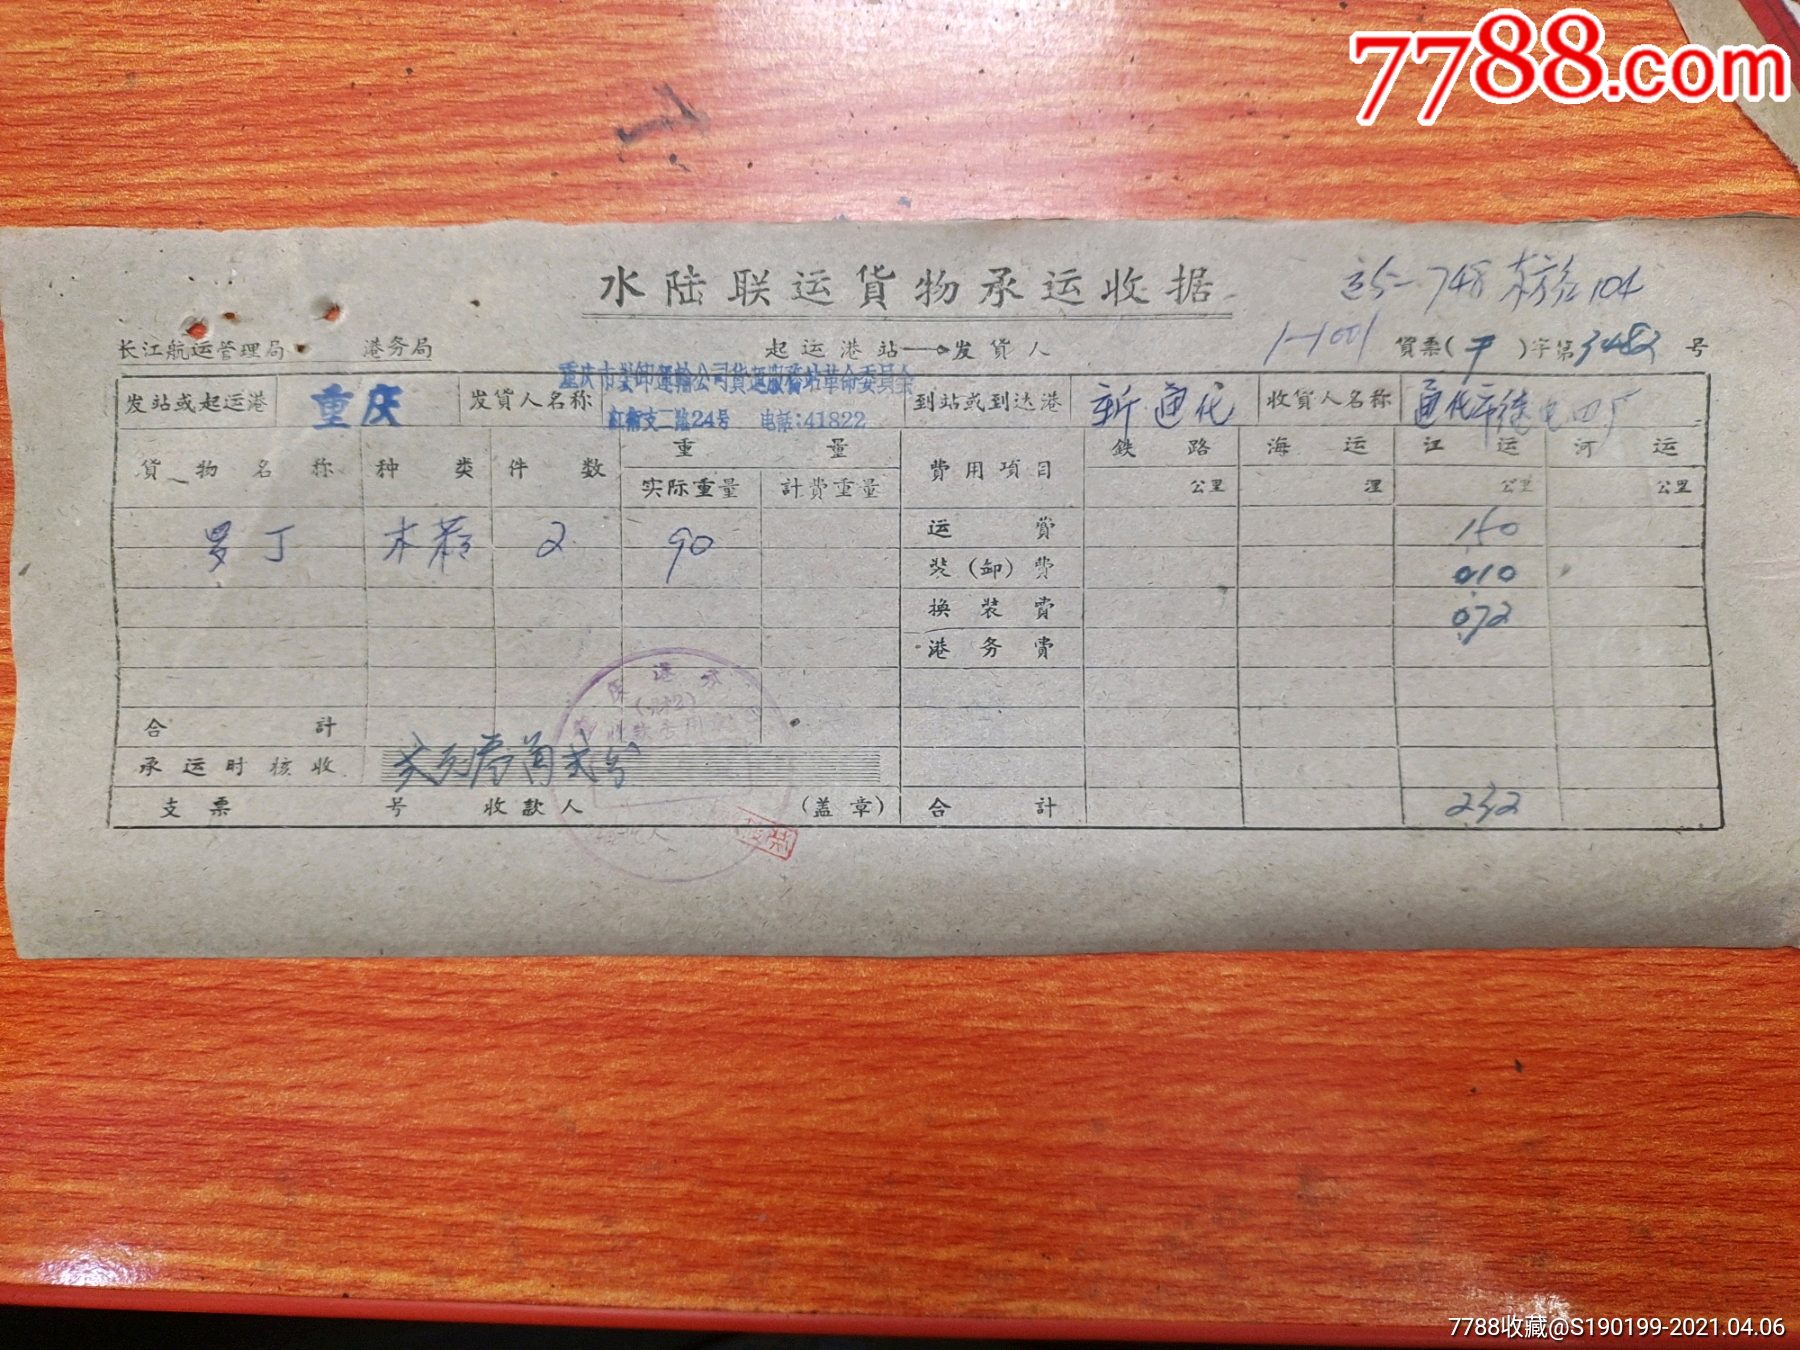 7788.com
水陆联运貨物承运收据
748 东方红104
长江航运管理局 港务局
起运港站→发貨人
1-1001
貨票( )字第3482号
重庆市装卸运输公司貨运服务站革命委员会
发站或起运港 重庆 发貨人名称 支二路24号 电話:41822 到站或到达港 新通化 收貨人名称 通化市
貨物名称 种类 件数 重量 費用項目 鉄路 海运 江运 河运
实际重量 計費重量 公里 浬 公里 公里
罗丁 木 2 90 运費 1.50
装(卸)費 0.10
换装費 0.72
港务費
合計
承运时核收 贰元叁角贰分
支票 号 收款人 (盖章) 合計 2.32
7788收藏@S190199-2021.04.06